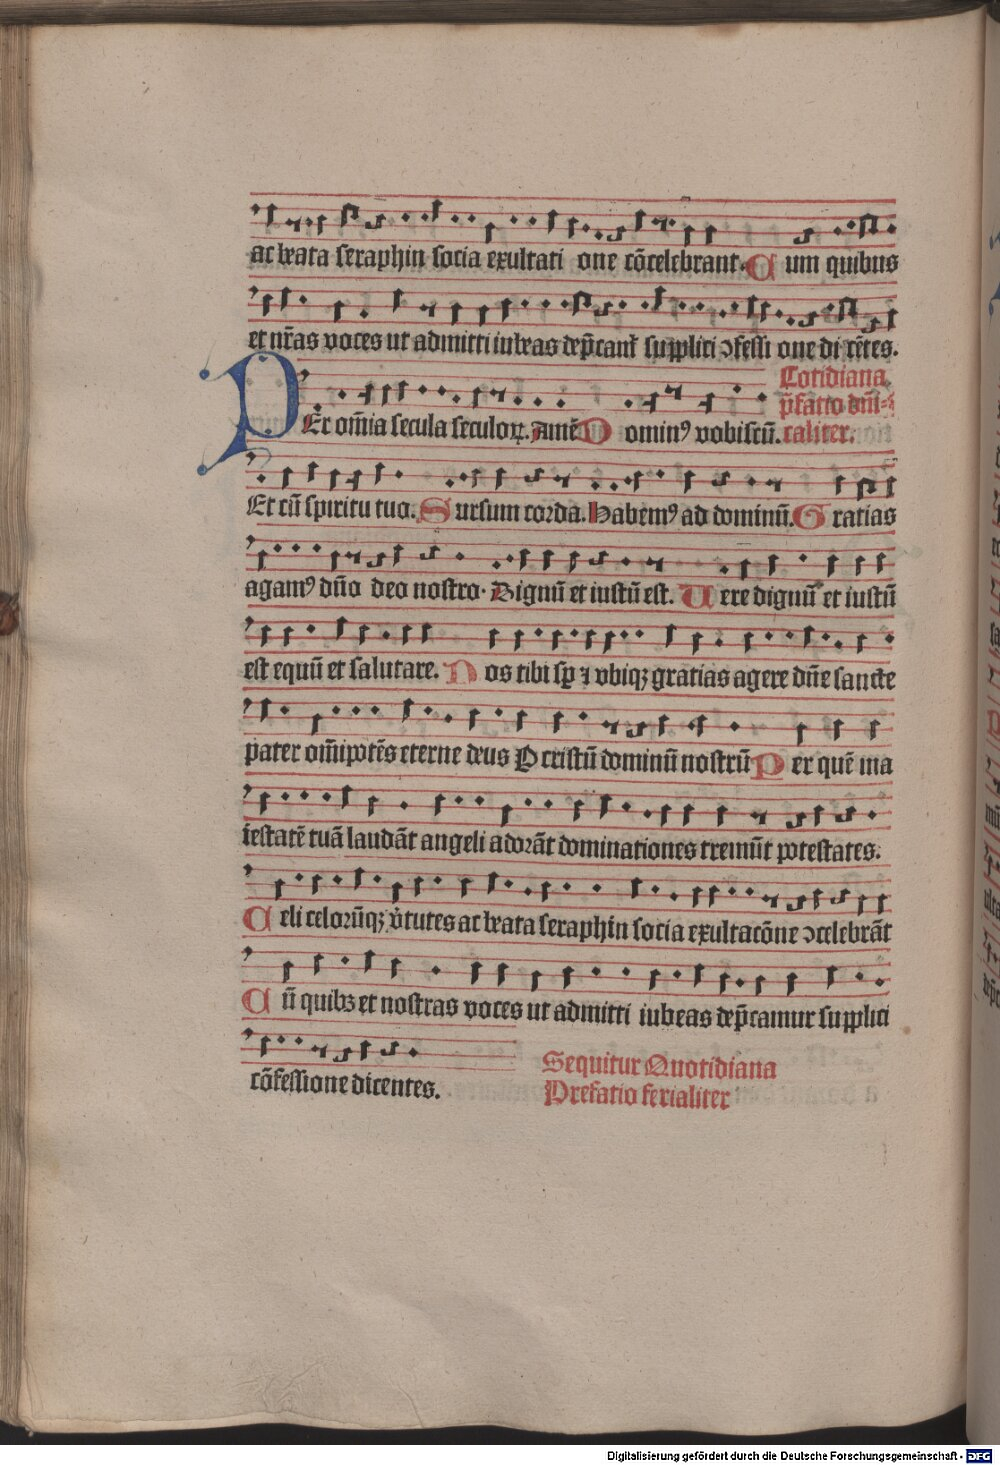 ac beata seraphin socia exultati one cōcelebrant. Cum quibus
et nr̄as voces ut admitti iubeas dep̄cant̄ supplici ↄfessi one di cētes.
Cotidiana
p̄fatio dn̄i⸗
caliter.
PEr om̄ia secula seculoꝝ. Amē Dominꝰ vobiscū.
Et cū spiritu tuo. Sursum corda. Habemꝰ ad dominū. Gratias
agamꝰ dn̄o deo nostro. Dignū et iustū est. Uere dignū et iustū
est equū et salutare. Nos tibi sꝑ ⁊ vbiqꝫ gratias agere dn̄e sancte
pater om̄ipotēs eterne deus P cristū dominū nostrū Per quē ma
iestatē tuā laudāt angeli adorāt dominationes tremūt potestates.
Celi celorūqꝫ v̄tutes ac beata seraphin socia exultacōne ↄcelebrāt
Cū quibꝫ et nostras voces ut admitti iubeas dep̄camur supplici
cōfessione dicentes.
Sequitur Quotidiana
Prefatio ferialiter
Digitalisierung gefördert durch die Deutsche Forschungsgemeinschaft - DFG